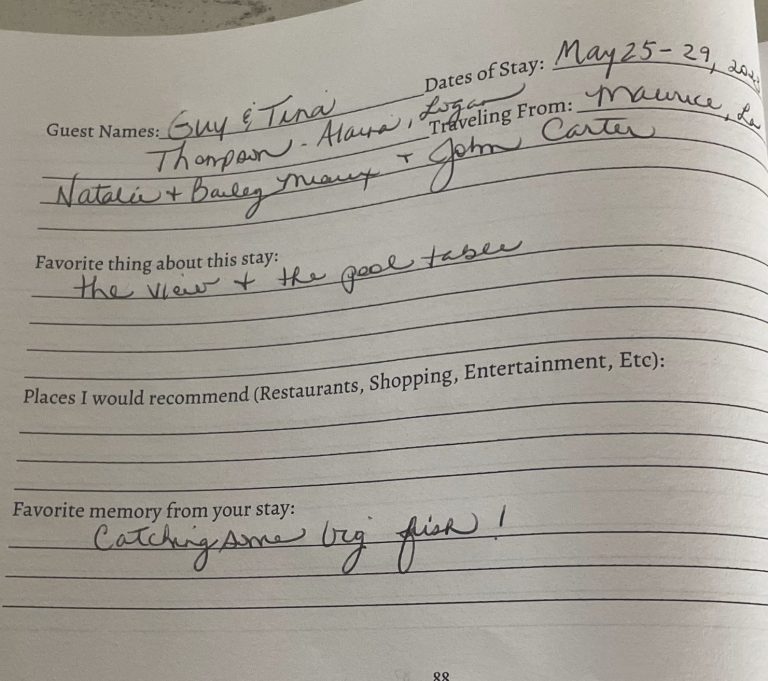 Dates of Stay: May 25-29,
Guest Names: Guy & Tina
Traveling From: Maurice, La
Thompson - Alaina, Logan
Natalie + Bailey Meaux + John Carter
Favorite thing about this stay:
the view + the pool table
Places I would recommend (Restaurants, Shopping, Entertainment, Etc):
Favorite memory from your stay:
Catching some big fish!
88